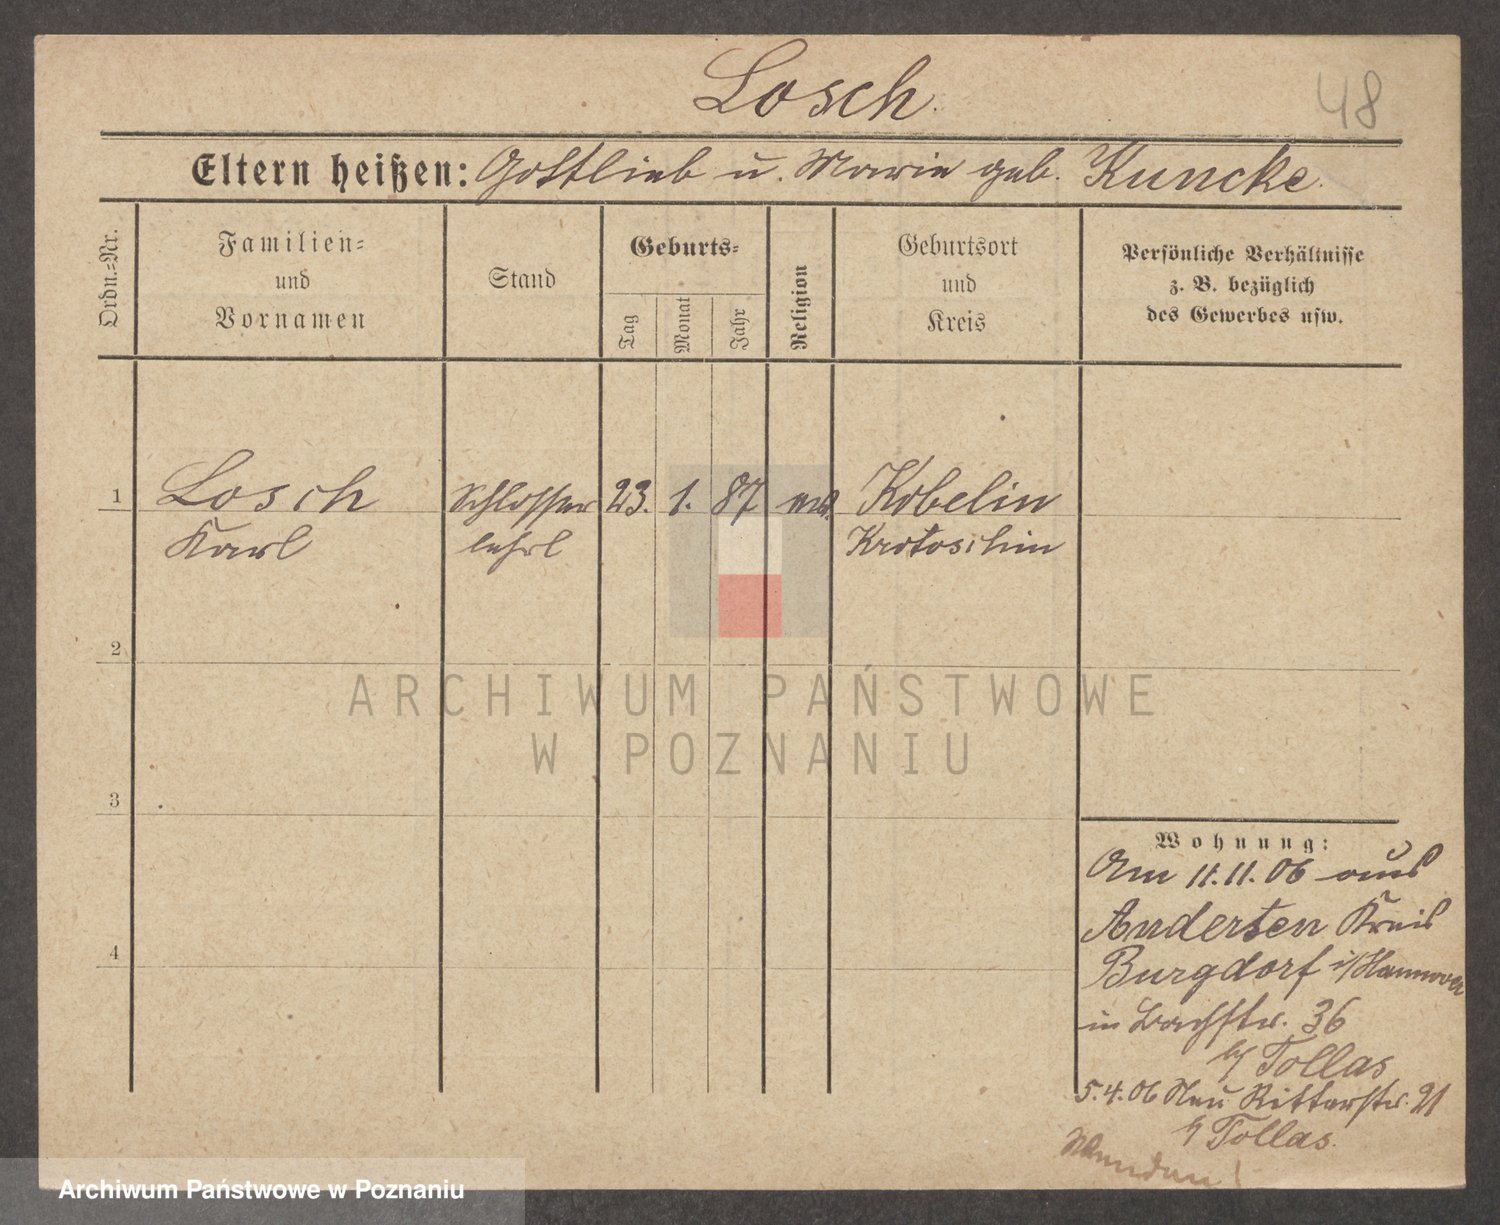 Losch.
48
Eltern heißen: Gottlieb u. Marie geb. Kuncke.
Ordn.=Nr.
Familien=
und
Vornamen
Stand
Geburts=
Tag
Monat
Jahr
Religion
Geburtsort
und
Kreis
Persönliche Verhältnisse
z. B. bezüglich
des Gewerbes usw.
1 Losch Schlosser 23. 1. 87 Kobelin
Karl lehrl Krotoschin
2
3
4
ARCHIWUM PAŃSTWOWE
W POZNANIU
Wohnung:
Am 11.11.06 aus
Anderten Kreis
Burgdorf i/Hannover
in Bachstr. 36
b/ Tollas
5.4.06 Neu Ritterstr. 21
b/ Tollas.
Wenden!
Archiwum Państwowe w Poznaniu